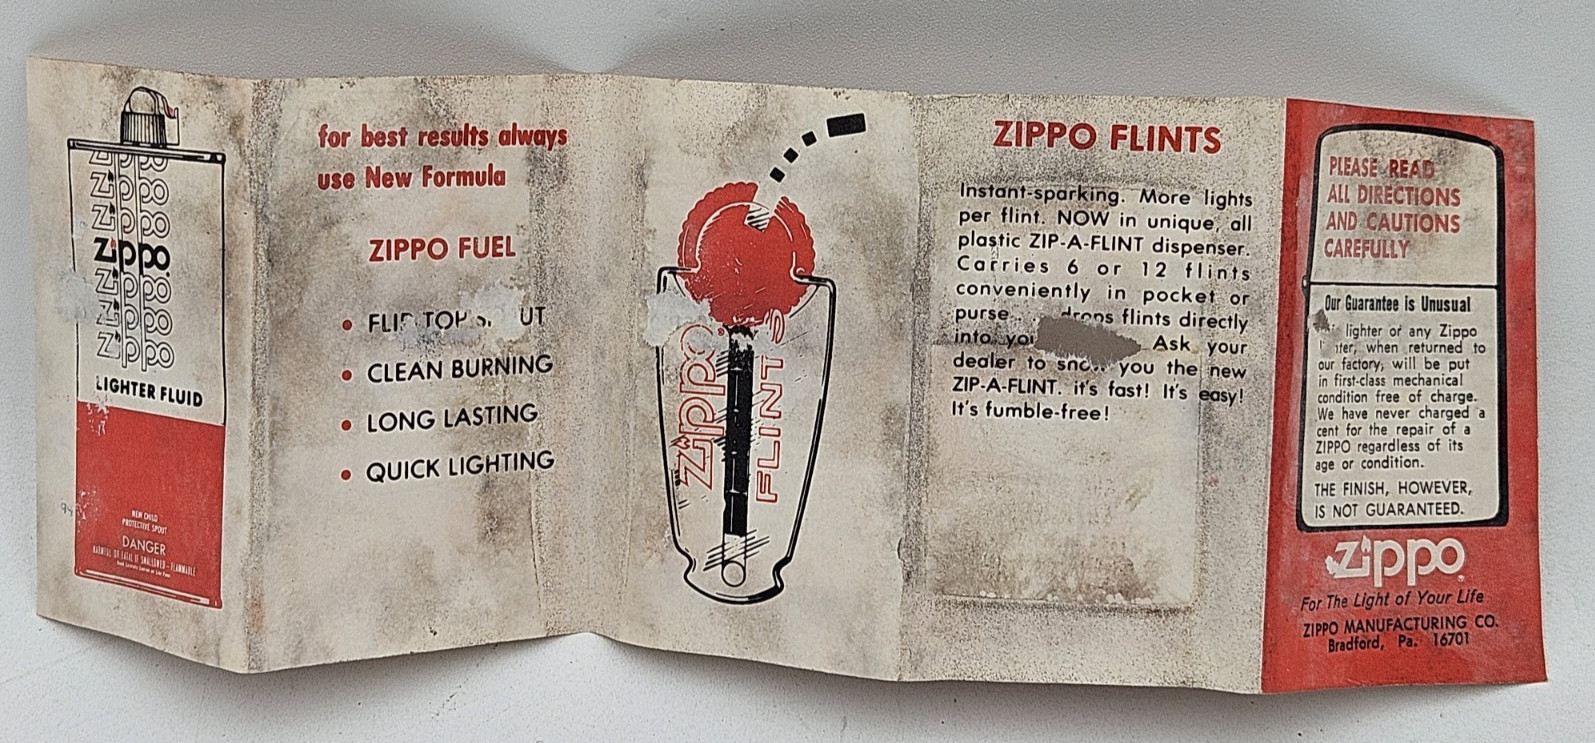 Zippo
Zippo
Zippo
Zippo
Zippo
Zippo
Zippo
Zippo
LIGHTER FLUID
94
NEW CHILD
PROTECTIVE SPOUT
DANGER
HARMFUL OR FATAL IF SWALLOWED - FLAMMABLE
for best results always
use New Formula
ZIPPO FUEL
• FLIP TOP UT
• CLEAN BURNING
• LONG LASTING
• QUICK LIGHTING
Zippo
FLINTS
ZIPPO FLINTS
Instant-sparking. More lights
per flint. NOW in unique, all
plastic ZIP-A-FLINT dispenser.
Carries 6 or 12 flints
conveniently in pocket or
purse... drops flints directly
into Ask your
dealer to you the new
ZIP-A-FLINT. it's fast! It's easy!
It's fumble-free!
PLEASE READ
ALL DIRECTIONS
AND CAUTIONS
CAREFULLY
Our Guarantee is Unusual
lighter or any Zippo
when returned to
our factory, will be put
in first-class mechanical
condition free of charge.
We have never charged a
cent for the repair of a
ZIPPO regardless of its
age or condition.
THE FINISH, HOWEVER,
IS NOT GUARANTEED.
Zippo
For The Light of Your Life
ZIPPO MANUFACTURING CO.
Bradford, Pa. 16701